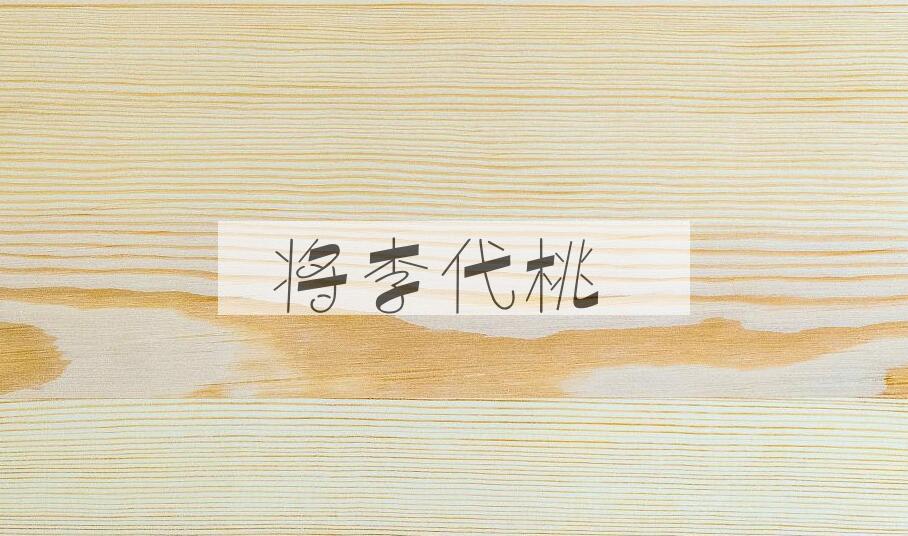 将李代桃